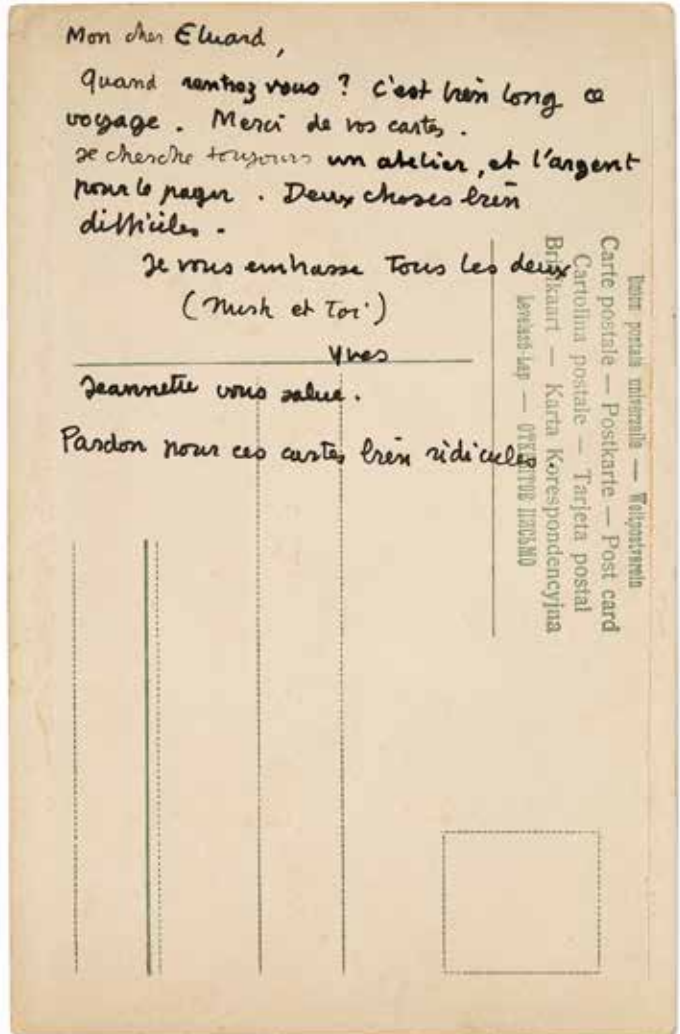 Mon cher Eluard,
Quand rentrez vous ? C'est bien long ce
voyage. Merci de vos cartes.
Je cherche toujours un atelier, et l'argent
pour le payer. Deux choses bien
difficiles.
Je vous embrasse tous les deux
(Nush et Toi)
Yves
Jeannette vous salue.
Pardon pour ces cartes bien ridicules.
Union postale universelle — Weltpostverein
Carte postale — Postkarte — Post card
Cartolina postale — Tarjeta postal
Briefkaart — Karta Korespondencyjna
Levelező-Lap — ОТКРЫТОЕ ПИСЬМО